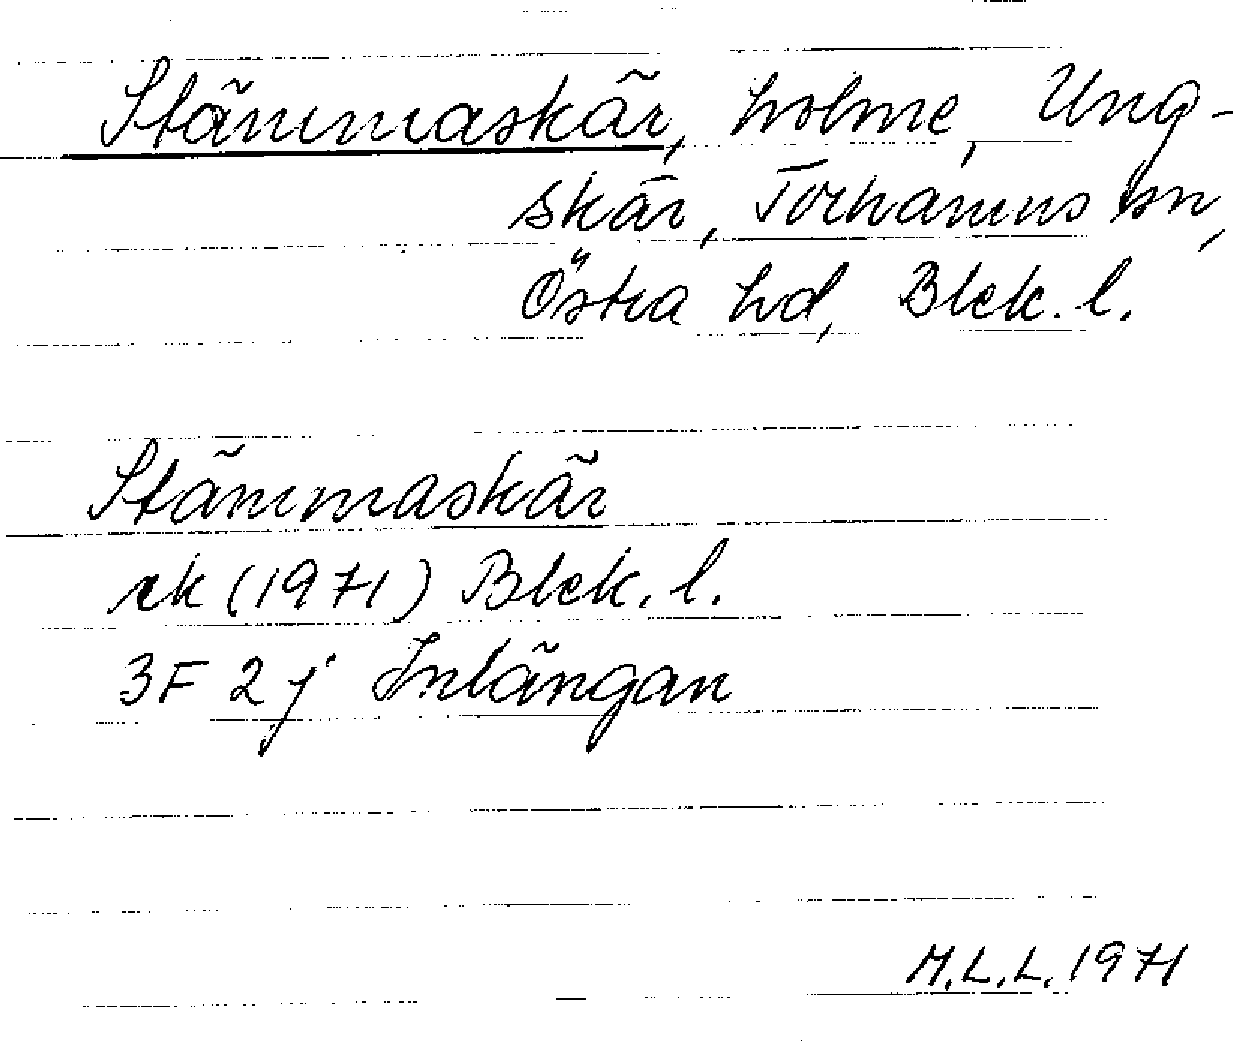 Stämmaskär, holme, Ung-
skär, Torhamns sn,
Östra hd, Blek. l.
Stämmaskär
rk (1971) Blek. l.
3F 2j Inlängan
M.L.L. 1971